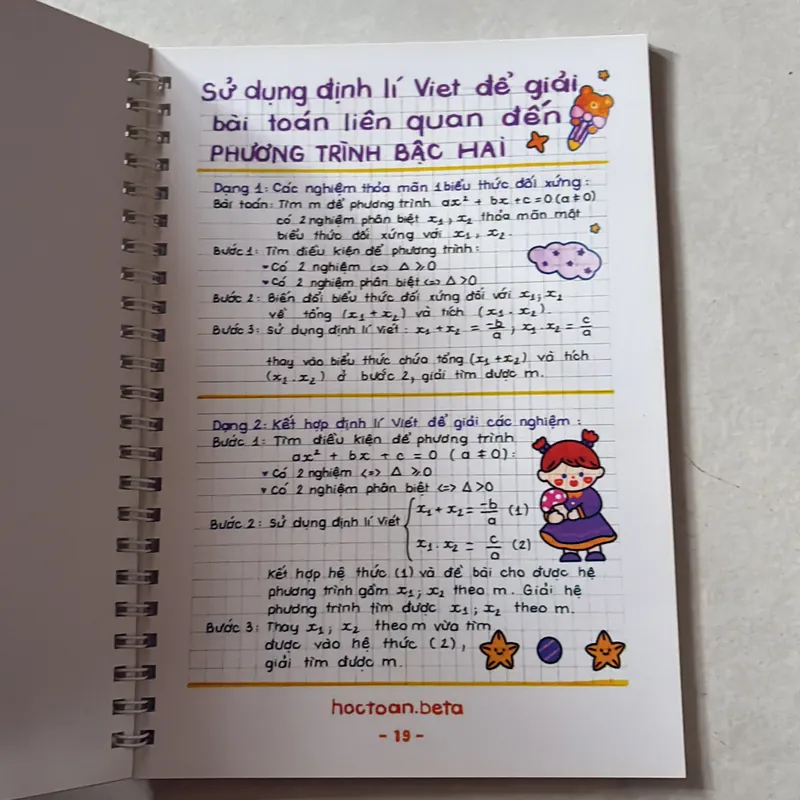 Sử dụng định lí Viet để giải
bài toán liên quan đến
PHƯƠNG TRÌNH BẬC HAI
Dạng 1: Các nghiệm thỏa mãn 1 biểu thức đối xứng:
Bài toán: Tìm m để phương trình ax² + bx + c = 0 (a ≠ 0)
có 2 nghiệm phân biệt x₁, x₂ thỏa mãn một
biểu thức đối xứng với x₁, x₂.
Bước 1: Tìm điều kiện để phương trình:
• Có 2 nghiệm <=> Δ ⩾ 0
• Có 2 nghiệm phân biệt <=> Δ > 0
Bước 2: Biến đổi biểu thức đối xứng đối với x₁; x₂
về tổng (x₁ + x₂) và tích (x₁ . x₂).
Bước 3: Sử dụng định lí Viét: x₁ + x₂ = -b/a; x₁ . x₂ = c/a
thay vào biểu thức chứa tổng (x₁ + x₂) và tích
(x₁ . x₂) ở bước 2, giải tìm được m.
Dạng 2: Kết hợp định lí Viét để giải các nghiệm:
Bước 1: Tìm điều kiện để phương trình
ax² + bx + c = 0 (a ≠ 0):
• Có 2 nghiệm <=> Δ ⩾ 0
• Có 2 nghiệm phân biệt <=> Δ > 0
Bước 2: Sử dụng định lí Viét { x₁ + x₂ = -b/a (1)
x₁ . x₂ = c/a (2)
Kết hợp hệ thức (1) và đề bài cho được hệ
phương trình gồm x₁; x₂ theo m. Giải hệ
phương trình tìm được x₁; x₂ theo m.
Bước 3: Thay x₁; x₂ theo m vừa tìm
được vào hệ thức (2),
giải tìm được m.
hoctoan.beta
- 19 -